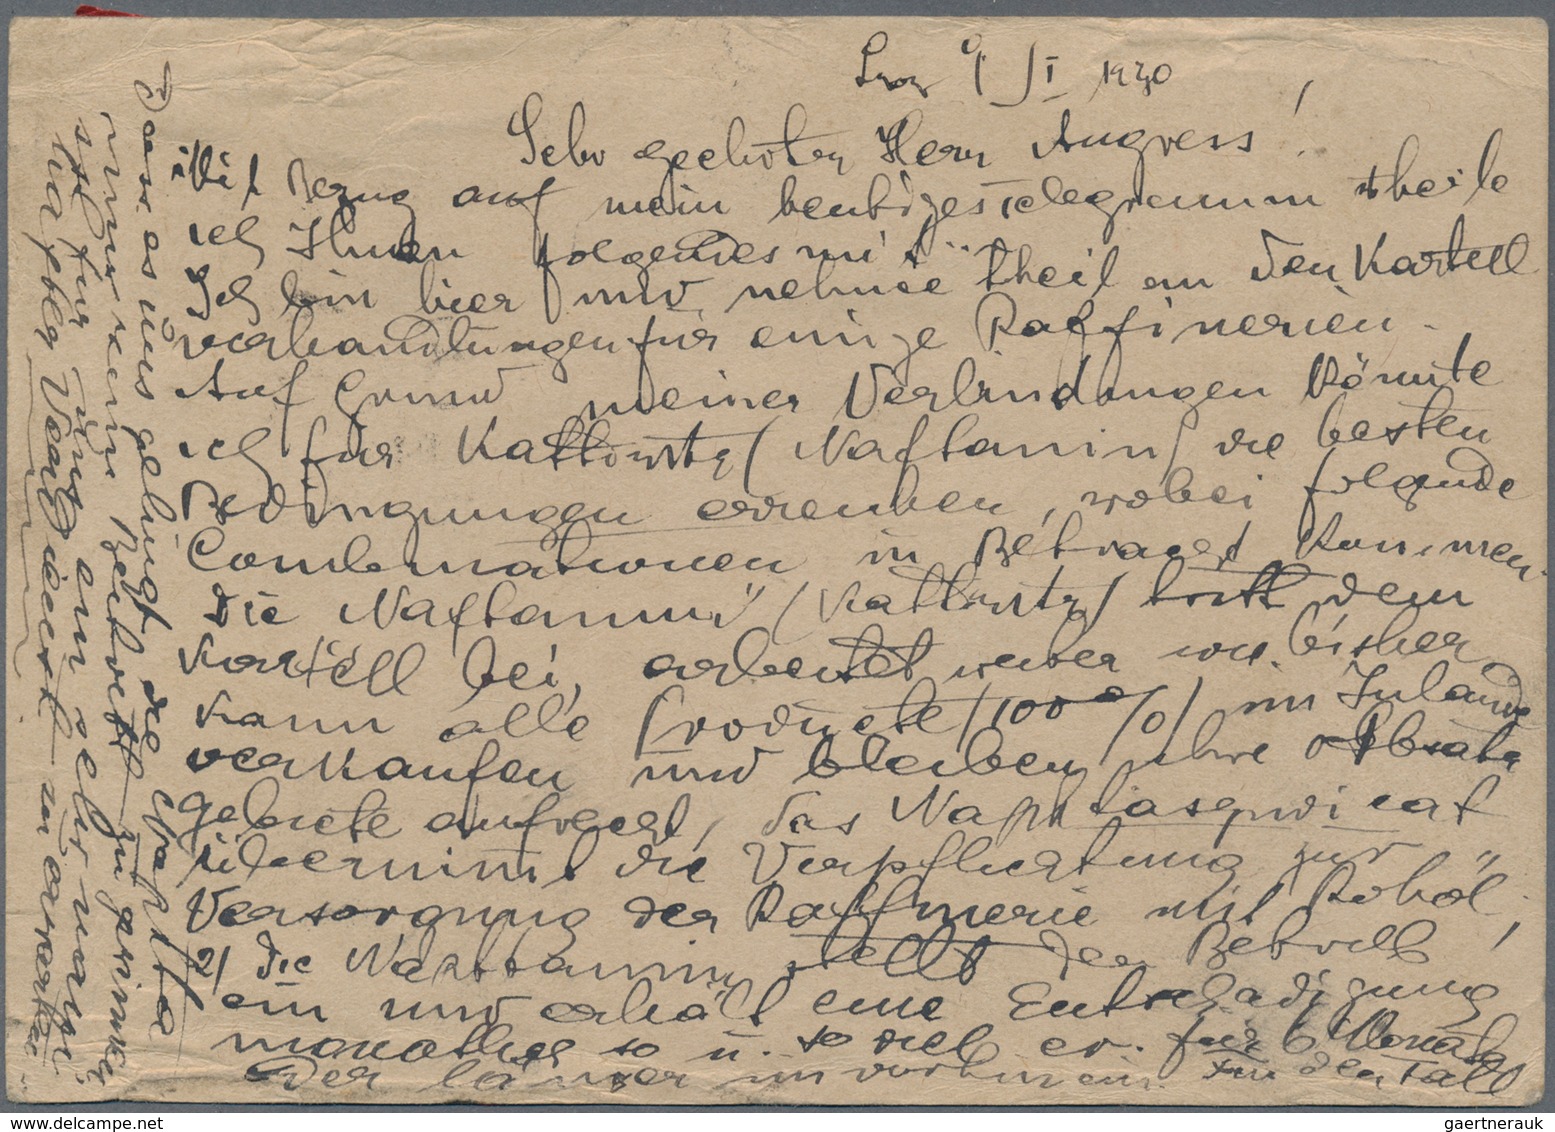 Lwow 9/VI 1930
Sehr geehrter Herr Angress!
Mit Bezug auf mein heutiges Telegramm theile
ich Ihnen folgendes mit:
Ich bin hier und nehme Theil an den Kartell
verhandlungen für einige Raffinerien.
Auf Grund meiner Verbindungen könnte
ich für Kattowitz (Naftamin) die besten
Bedingungen erreichen, wobei folgende
Combinationen in Betracht kommen.
Die "Naftamin" (Kattowitz) tritt dem
Kartell bei, arbeitet weiter wie bisher
kann alle Producte (100%) im Inlande
verkaufen und bleiben ihre Absatz
gebiete aufrecht, das Naphtasyndicat
übernimt die Verpflichtung zur
Versorgung der Raffinerie mit Rohöl,
2) Die Naftamin stellt den Betrieb
ein und erhält eine Entschädigung
monatlich so u. so viel ev. für 6 Monate
oder länger im vorhinein. Für den Fall
dass es uns gelingt die Nafta
min seine Beitritt zu gewinnen
für uns ein sehr
Verdienst zu erwarten.
www.delcampe.net
gaertnerauk